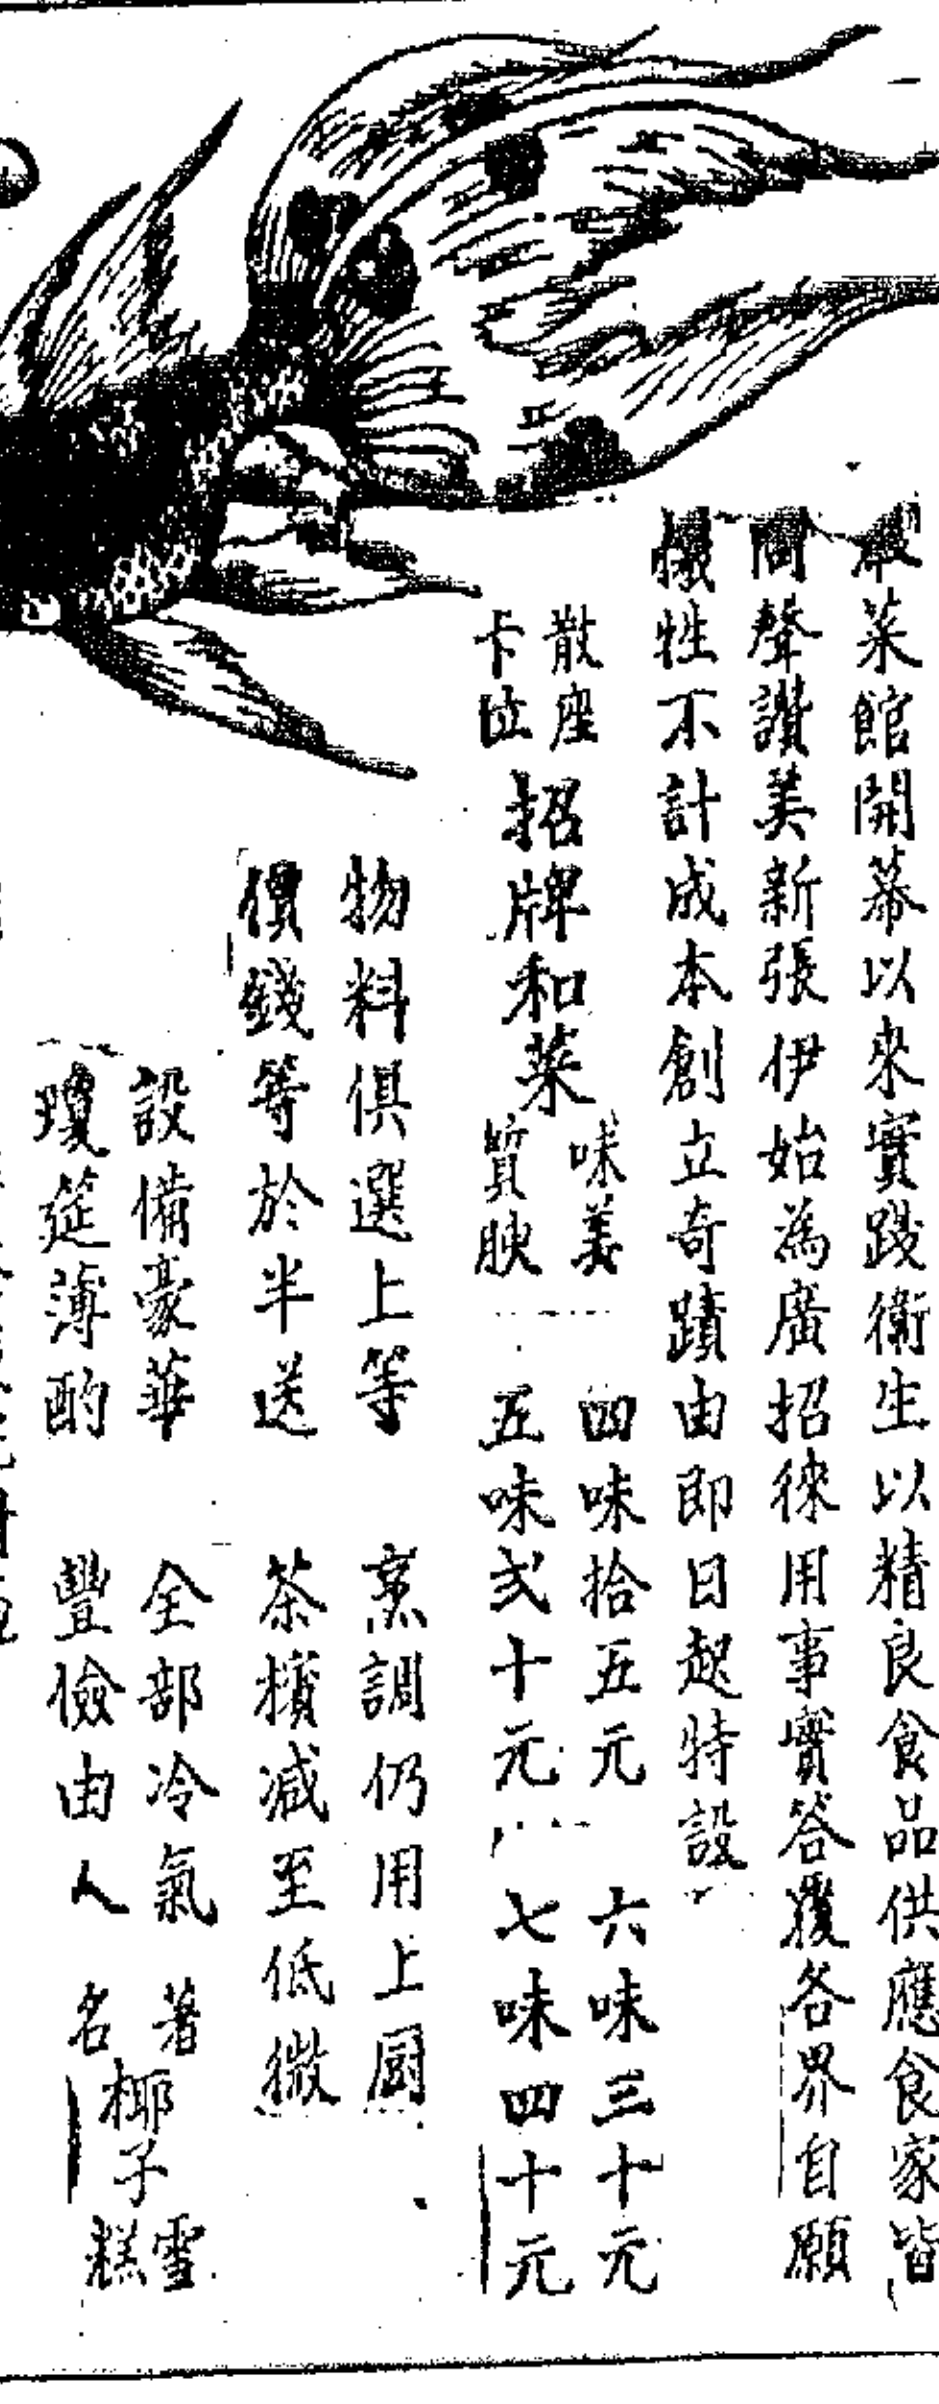 菜館開幕以來實踐衛生以精良食品供應食家皆
同聲讚美新張伊始為廣招徠用事實答覆各界自願
犧牲不計成本創立奇蹟由即日起特設
散座
卡位
招牌和菜
味美
質腴
四味拾五元 六味三十元
五味弍十元 七味四十元
物料俱選上等 烹調仍用上厨
價錢等於半送 茶檟减至低微
設備豪華 全部冷氣
瓊筵薄酌 豐儉由人
著名
椰子
雪糕